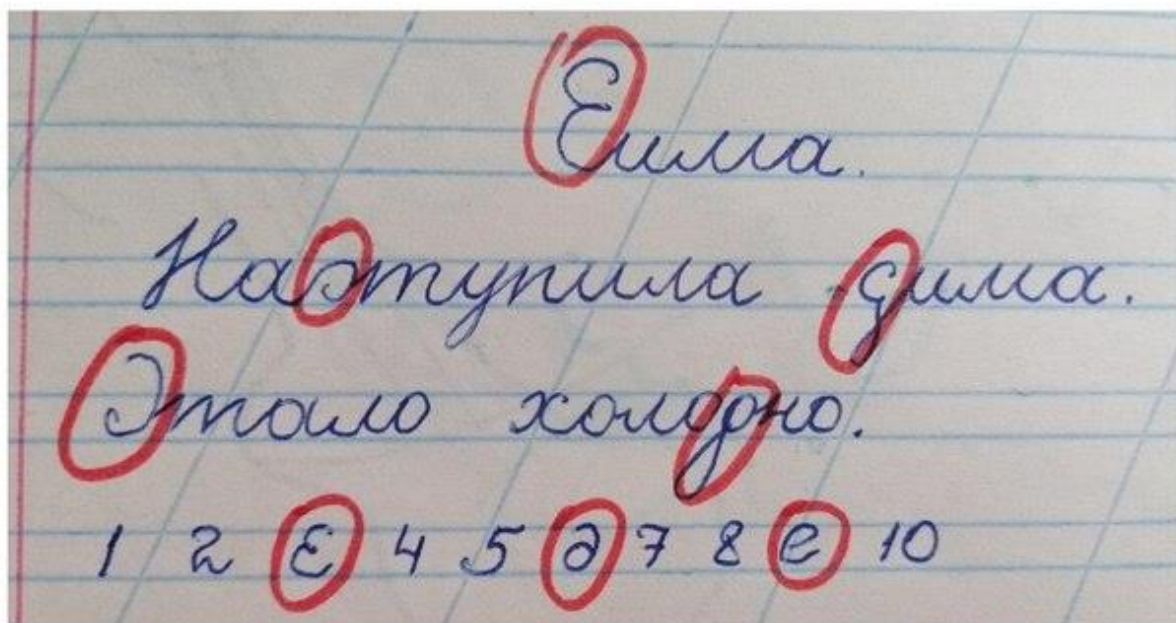 Еима.
Наэтупила дима.
Этало холодно.
1 2 ε 4 5 ∂ 7 8 е 10